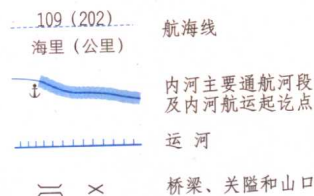 109 (202)
海里 (公里)
航海线
内河主要通航河段
及内河航运起讫点
运 河
桥梁、关隘和山口